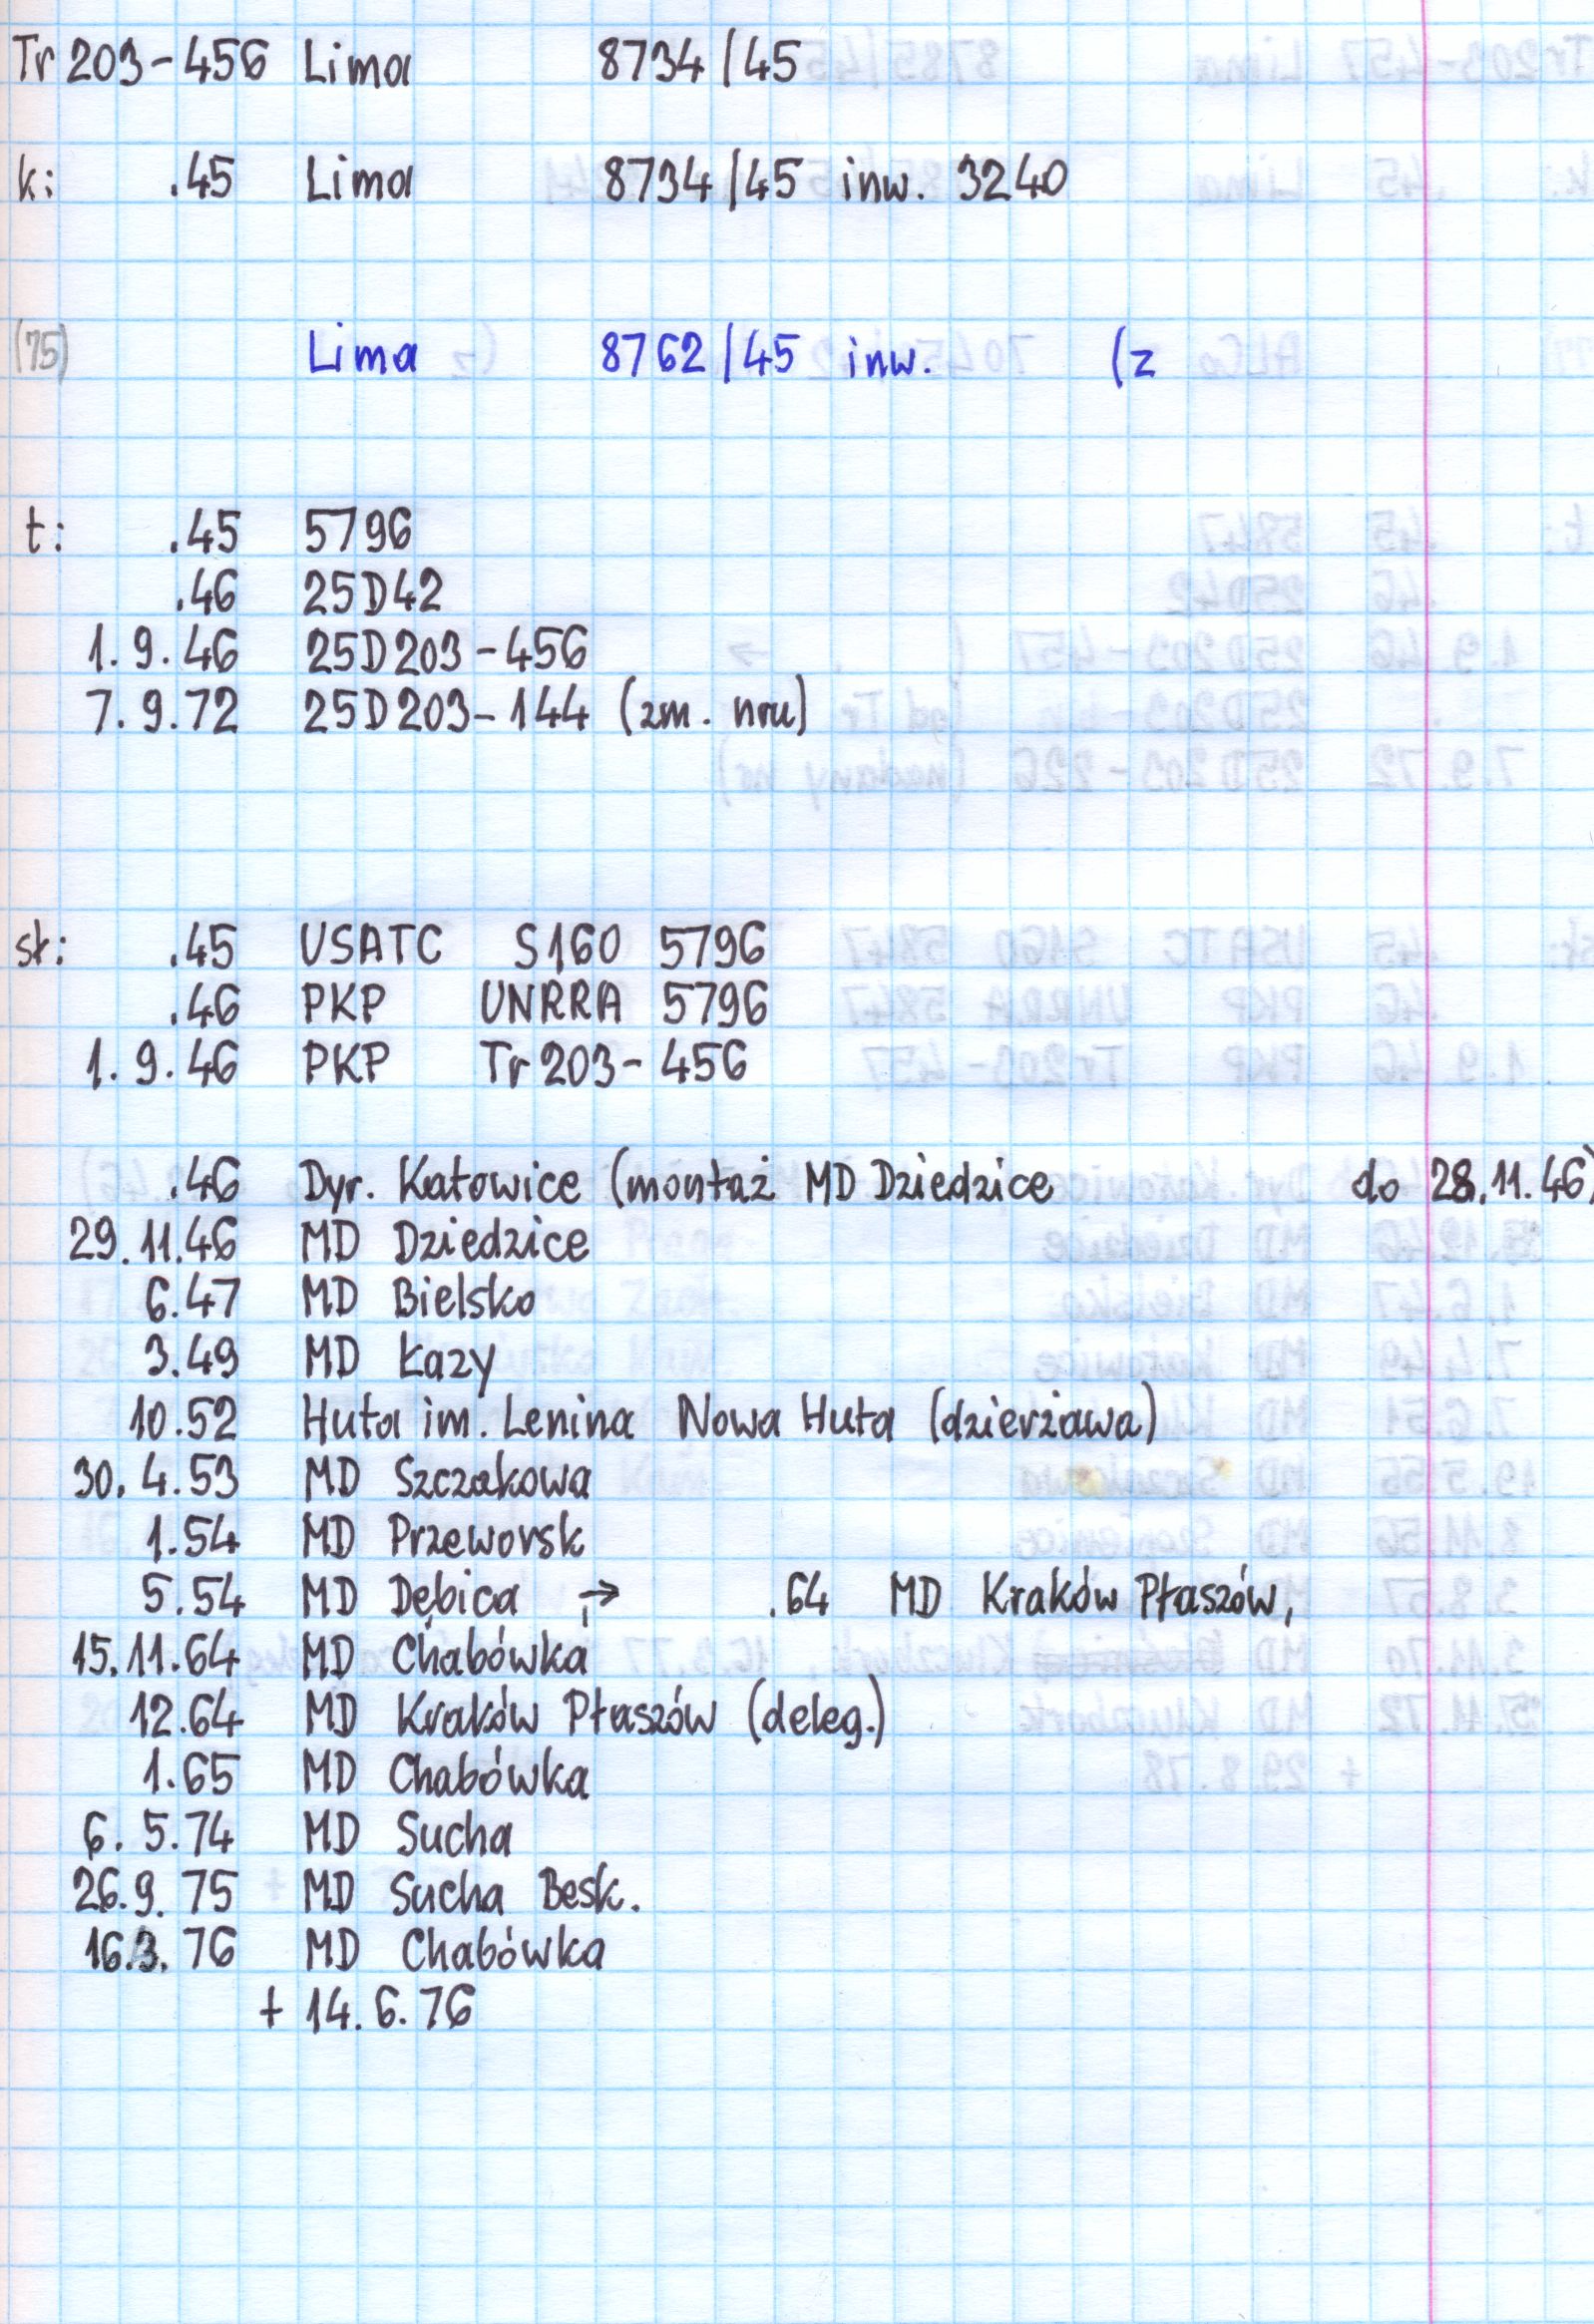 Tr 203-456 Lima 8734/45
k: .45 Lima 8734/45 inw. 3240
(75) Lima 8762/45 inw. (z
t: .45 5796
.46 25D42
1.9.46 25D203-456
7.9.72 25D203-144 (zm. nru)
st: .45 USATC S160 5796
.46 PKP UNRRA 5796
1.9.46 PKP Tr 203-456
.46 Dyr. Katowice (montaż MD Dziedzice do 28.11.46)
29.11.46 MD Dziedzice
6.47 MD Bielsko
3.49 MD Łazy
10.52 Huta im. Lenina Nowa Huta (dzierżawa)
30.4.53 MD Szczakowa
1.54 MD Przeworsk
5.54 MD Dębica → .64 MD Kraków Płaszów,
15.11.64 MD Chabówka
12.64 MD Kraków Płaszów (deleg.)
1.65 MD Chabówka
6.5.74 MD Sucha
26.9.75 MD Sucha Besk.
16.3.76 MD Chabówka
+ 14.6.76